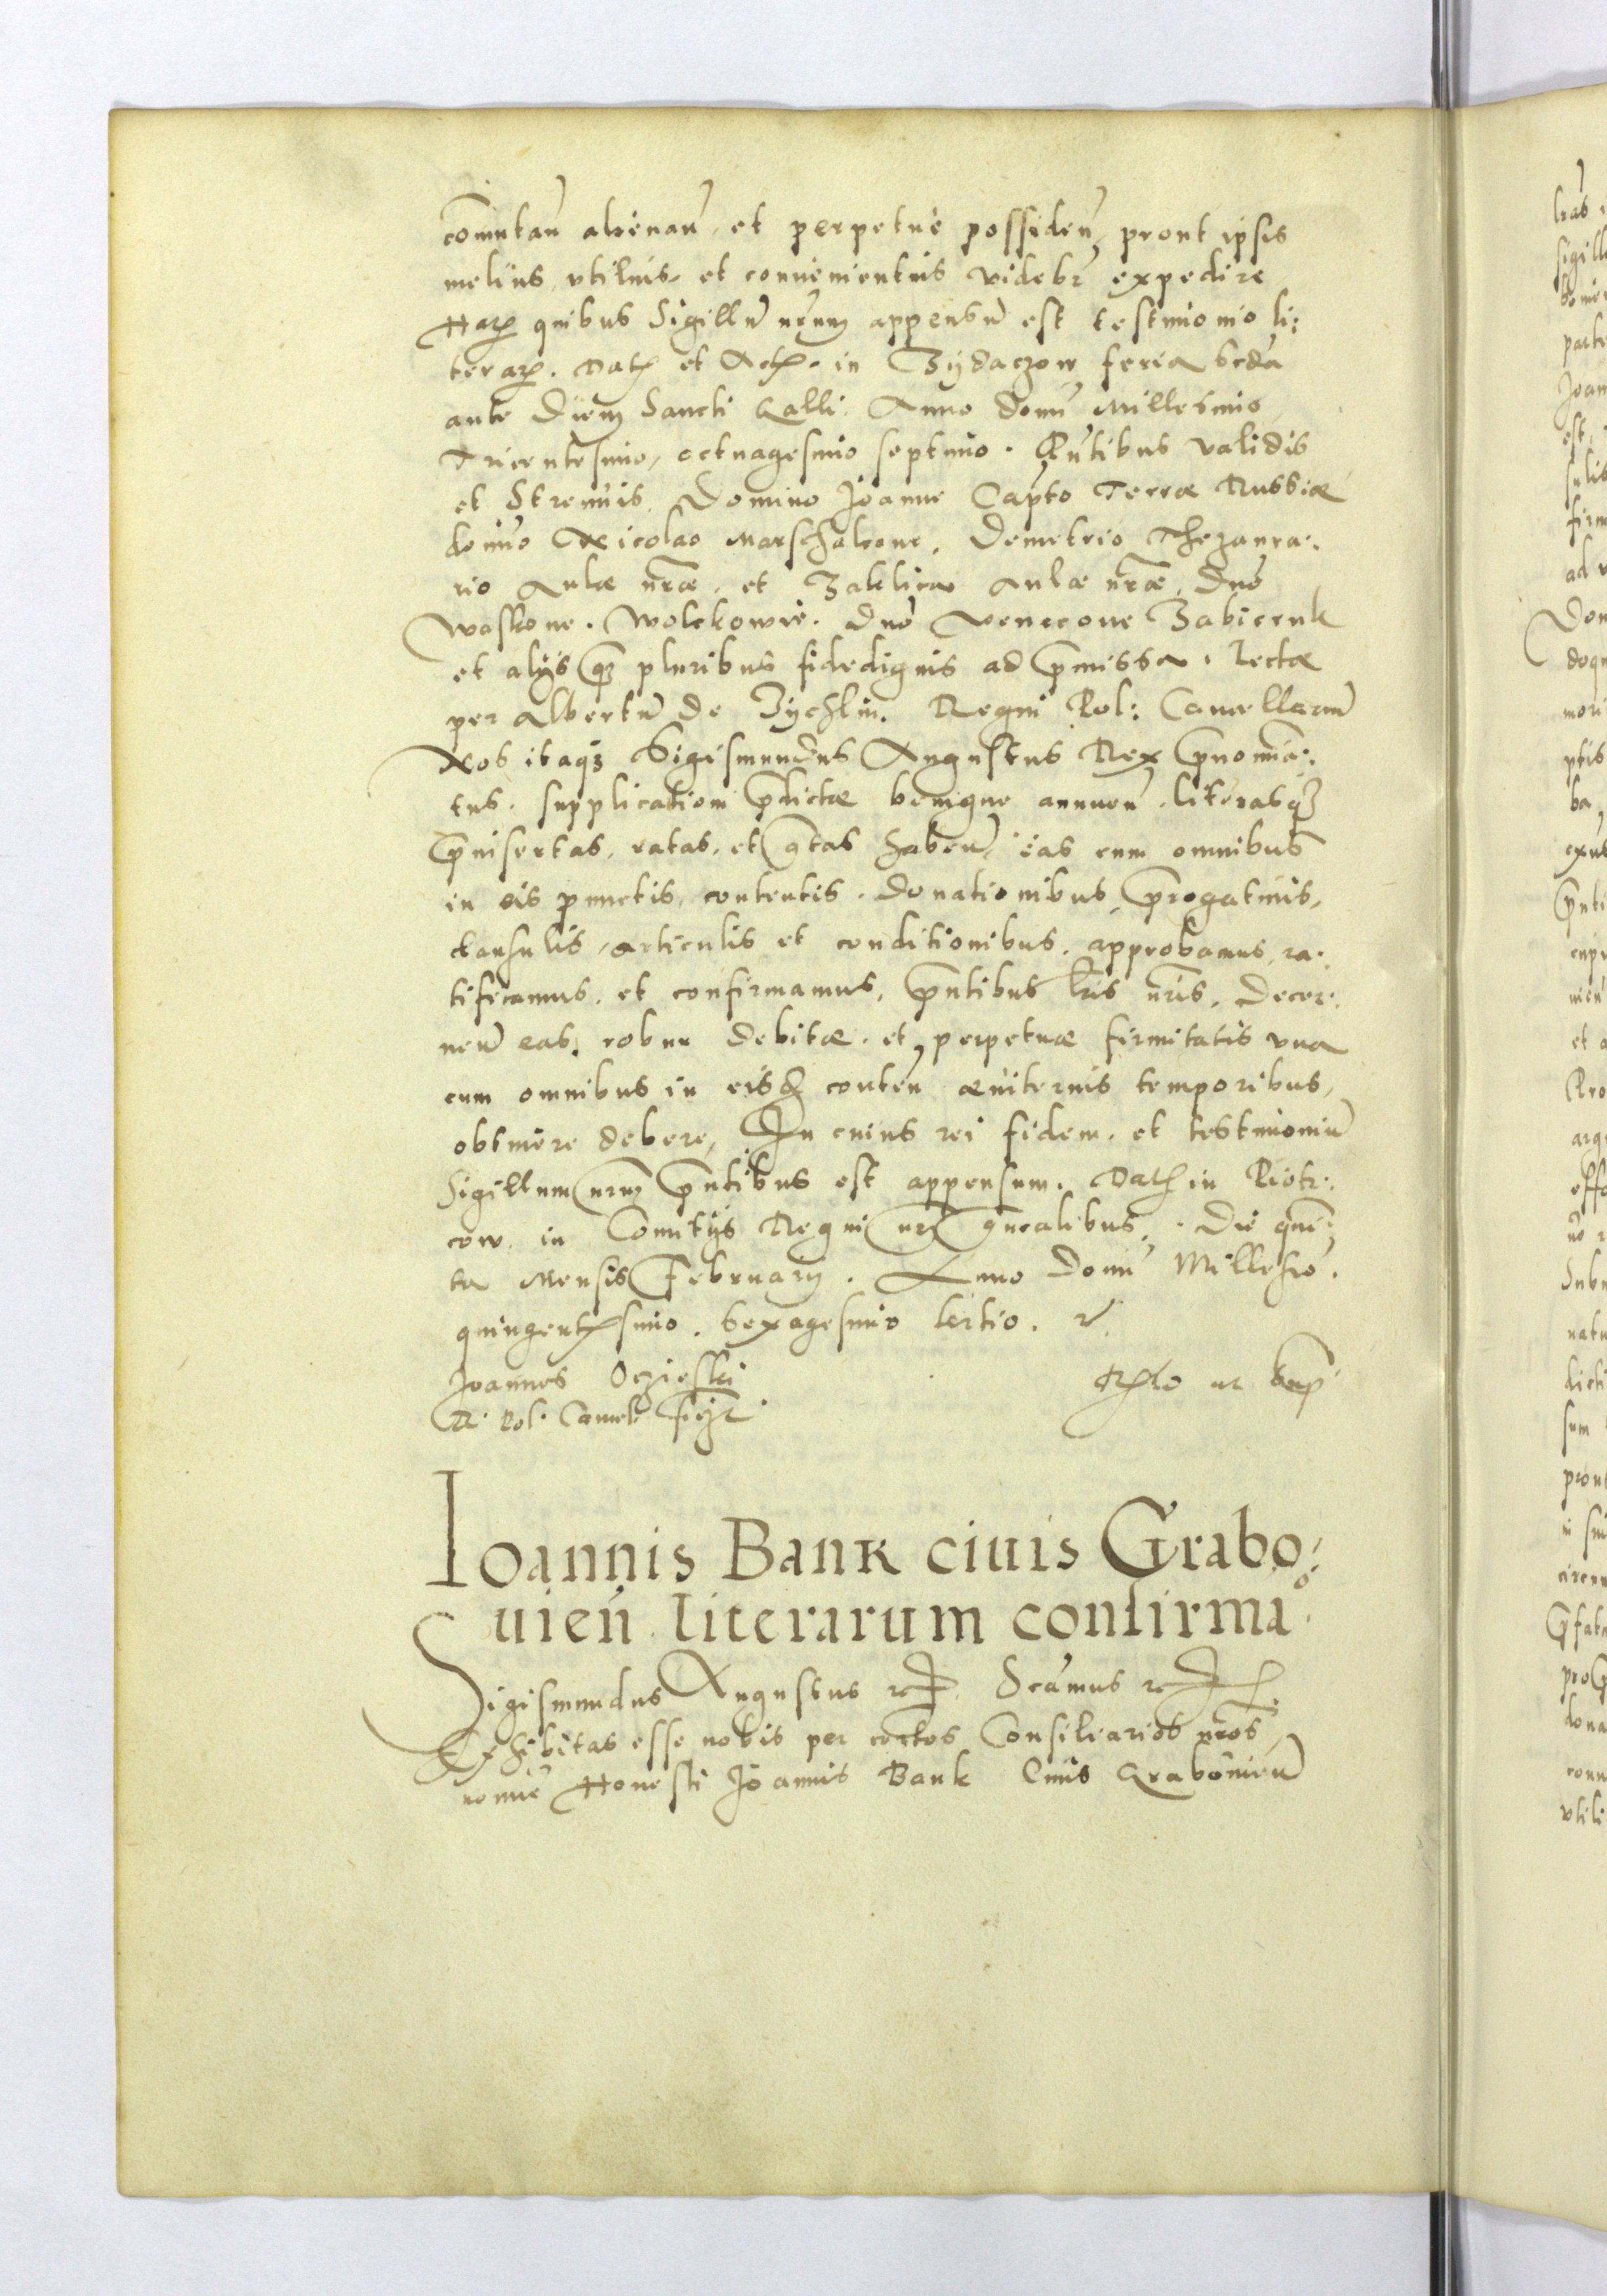 com̃utan̄ alienan̄ et perpetue possiden̄ prout ipsis
melius vtilius et conuenientius videbr̃ expedire
Harꝝ quibus Sigillũ nr̃um appensũ est testimonio li:
terarꝝ. Datꝭ et Actꝭ. in Zydaczow feria scďa
ante Diem Sancti Galli Anno Domi Millesimo
Tricentesimo, octuagesimo septimo. Pn̄tibus validis
et Strenuis Domino Joanne Capto Terræ Russiæ
domno Nicolao Marschalcone, Demetrio Thezaura:
rio Aulæ nr̃æ, et Zaklica Aulæ nr̃æ, Dno
Waskone. Wolckowie. Dno Venecone Zabieruk
et alijs qꝫ pluribus fidedignis ad p̄missa. Lectæ
per Albertũ De Zychlin. Regni Pol: Cancellariũ
Nos itaqꝫ Sigismundus Augustus Rex p̄nomia:
tus. supplicationi p̄dictæ benigne annuen̄. literasqꝫ
p̄insertas, ratas, et gtas haben̄, eas cum omnibus
in eis punctis, contentis. Donationibus, p̄rogatiuis,
clausulis, articulis et conditionibus. approbamus, ra:
tificamus, et confirmamus, p̄ntibus lr̃is nr̃is. Decer:
nen̄ eas, robur debitæ. et perpetuæ firmitatis vna
cum omnibus in eisď conten̄ æuiternis temporibus,
obtinere debere, In cuius rei fidem. et testimoniũ
Sigillum nr̃um p̄ntibus est appensum. Datꝭ in Piotr:
cow. in Comitijs Regni nr̃i gn̄ealibus. Die quin:
ta Mensis Februarij. Anno Domi Millesio.
quingentꝭsimo. sexagesimo tertio.
Joannes Oczieski
R. Pol. Cancell
Rꝭlo ut sup̄
Ioannis Bank ciuis Grabo:
uien̄ literarum confirmao
Sigismundus Augustus Scamus
Exhibitas esse nobis per certos Consiliarios nr̃os,
nomie Honesti Joannis Bank Ciuis Grabouien̄